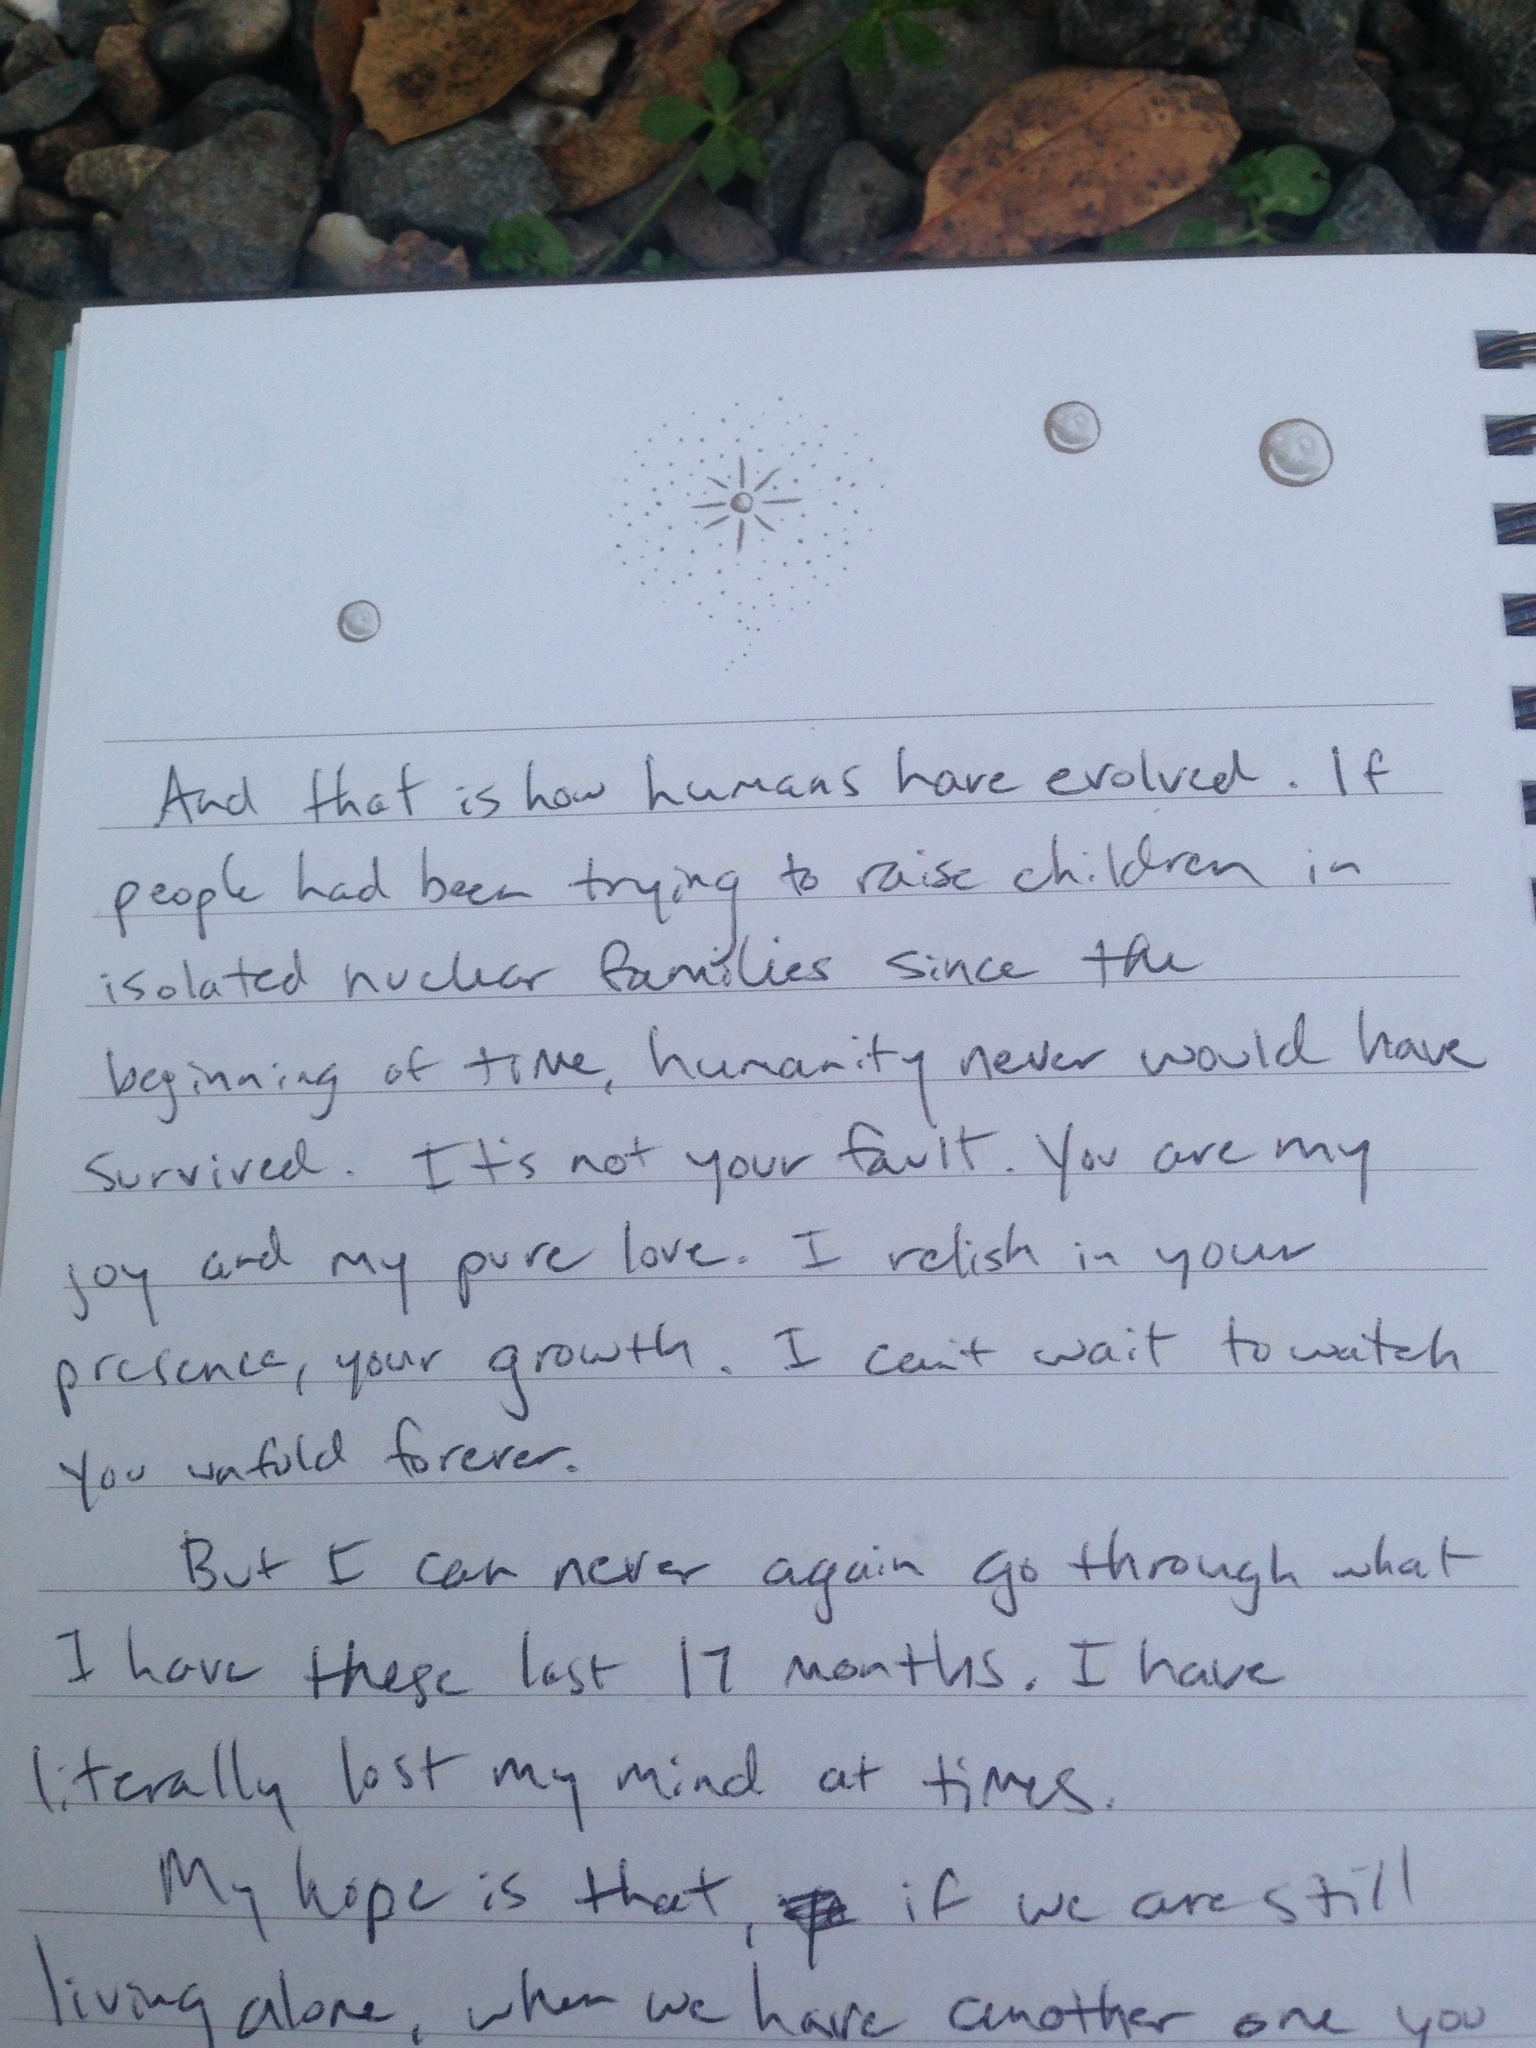 And that is how humans have evolved. If
people had been trying to raise children in
isolated nuclear families since the
beginning of time, humanity never would have
survived. It's not your fault. You are my
joy and my pure love. I relish in your
presence, your growth. I can't wait to watch
you unfold forever.
But I can never again go through what
I have these last 17 months. I have
literally lost my mind at times.
My hope is that, if we are still
living alone, when we have another one you